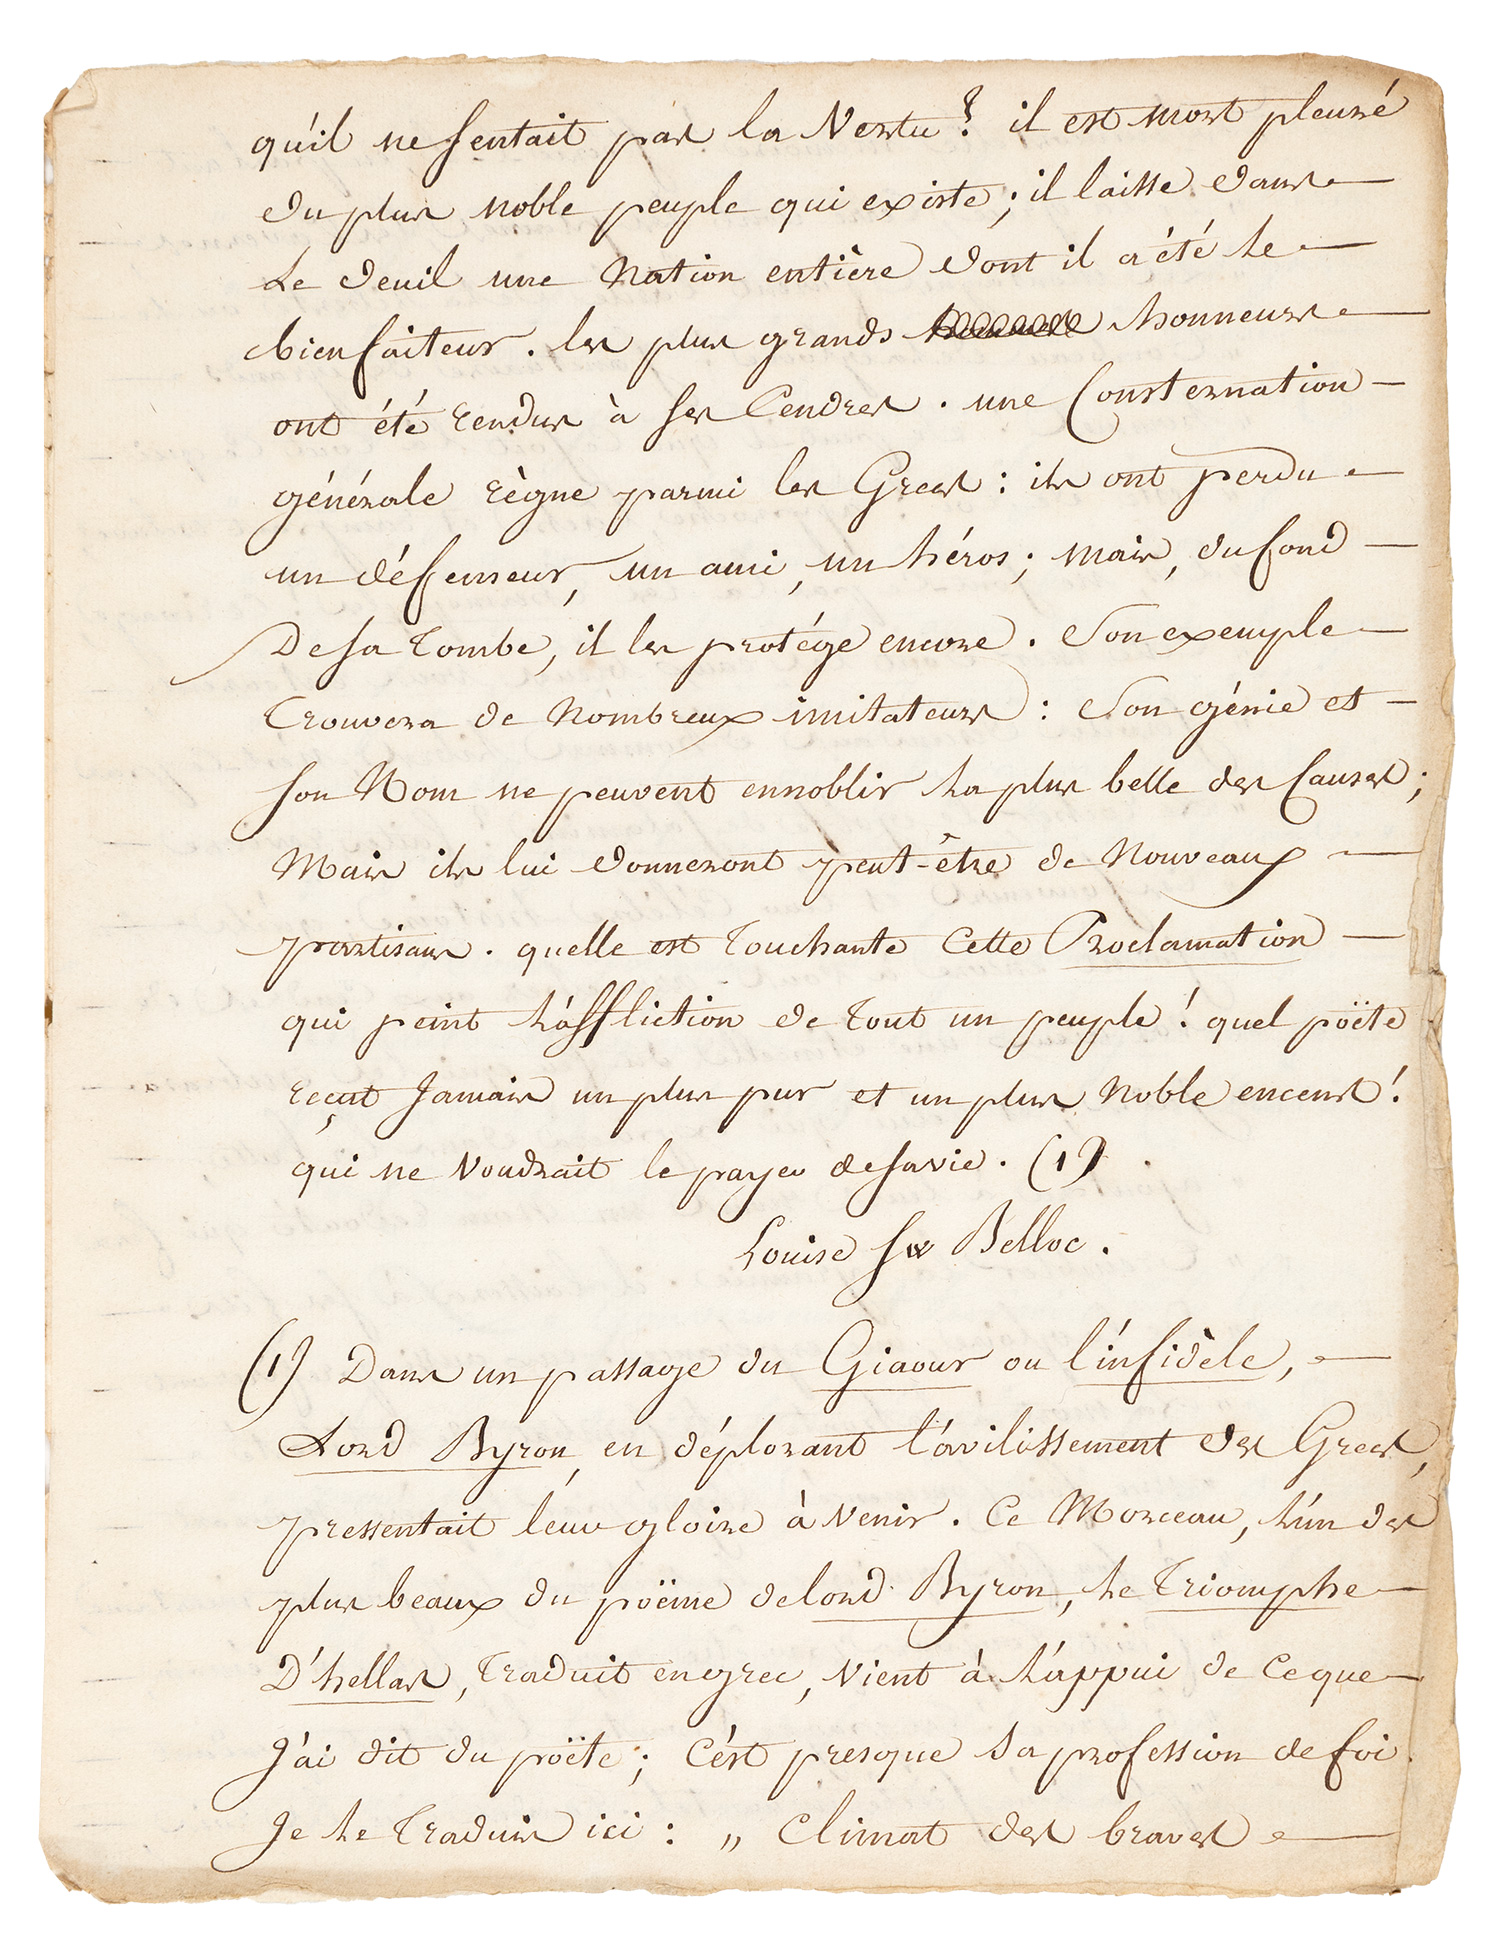 qu'il ne sentait pas la Vertu ? il est mort pleuré
du plus noble peuple qui existe ; il laisse dans
le deuil une Nation entière dont il a été le
bienfaiteur . les plus grands honneurs
ont été rendus à ses Cendres . une Consternation
générale règne parmi les Grecs : ils ont perdu
un défenseur, un ami, un héros ; mais, du fond
De sa tombe, il les protége encore . Son exemple
trouvera de Nombreux imitateurs : Son génie et
son Nom ne peuvent ennoblir la plus belle des Causes ;
Mais ils lui donneront peut-être de Nouveaux
partisans . quelle est touchante Cette Proclamation
qui peint l'affliction de tout un peuple ! quel poëte
reçut Jamais un plus pur et un plus Noble encens !
qui ne Voudrait le payer de sa vie . (1)
Louise Sw Belloc .
(1) Dans un passage du Giaour ou l'infidèle,
Lord Byron, en déplorant l'avilissement des Grecs,
pressentait leur gloire à Venir . Ce Morceau, l'un des
plus beaux du poëme de lord Byron, le Triomphe
D'hellas, traduit en grec, Vient à l'appui de Ce que
J'ai dit du poëte ; C'est presque sa profession de foi
Je le traduis ici : „ Climat des braves